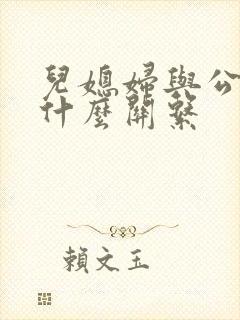 兒媳婦與公
什麼關繫
賴文玉